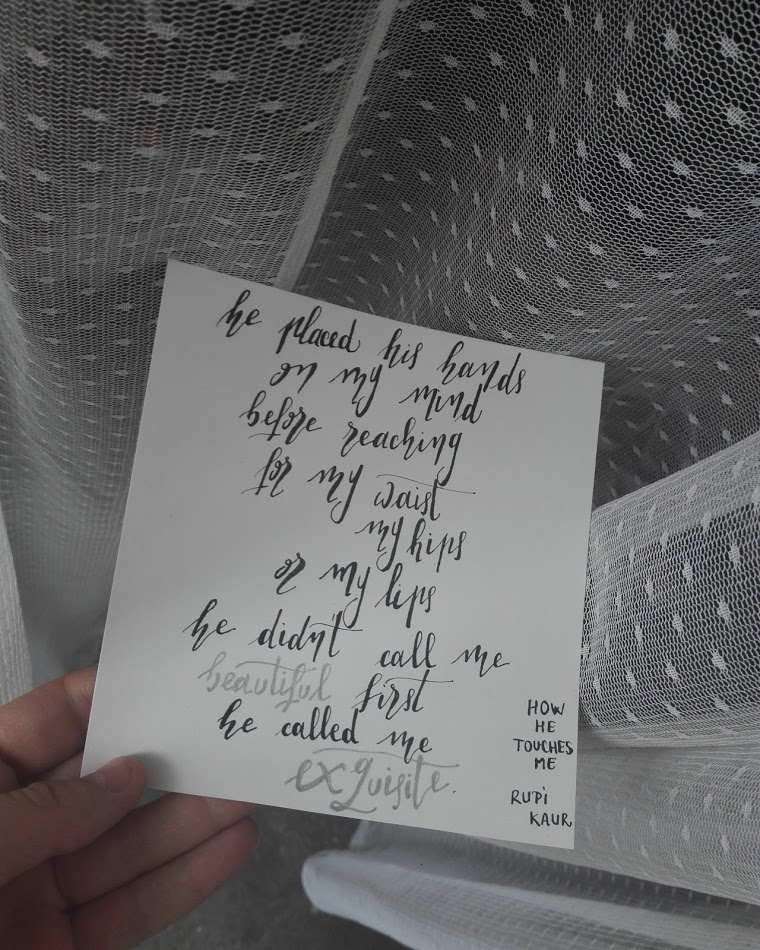 he placed his hands
on my mind
before reaching
for my waist
my hips
or my lips
he didn't call me
beautiful first
he called me
exquisite.
HOW
HE
TOUCHES
ME
RUPI
KAUR